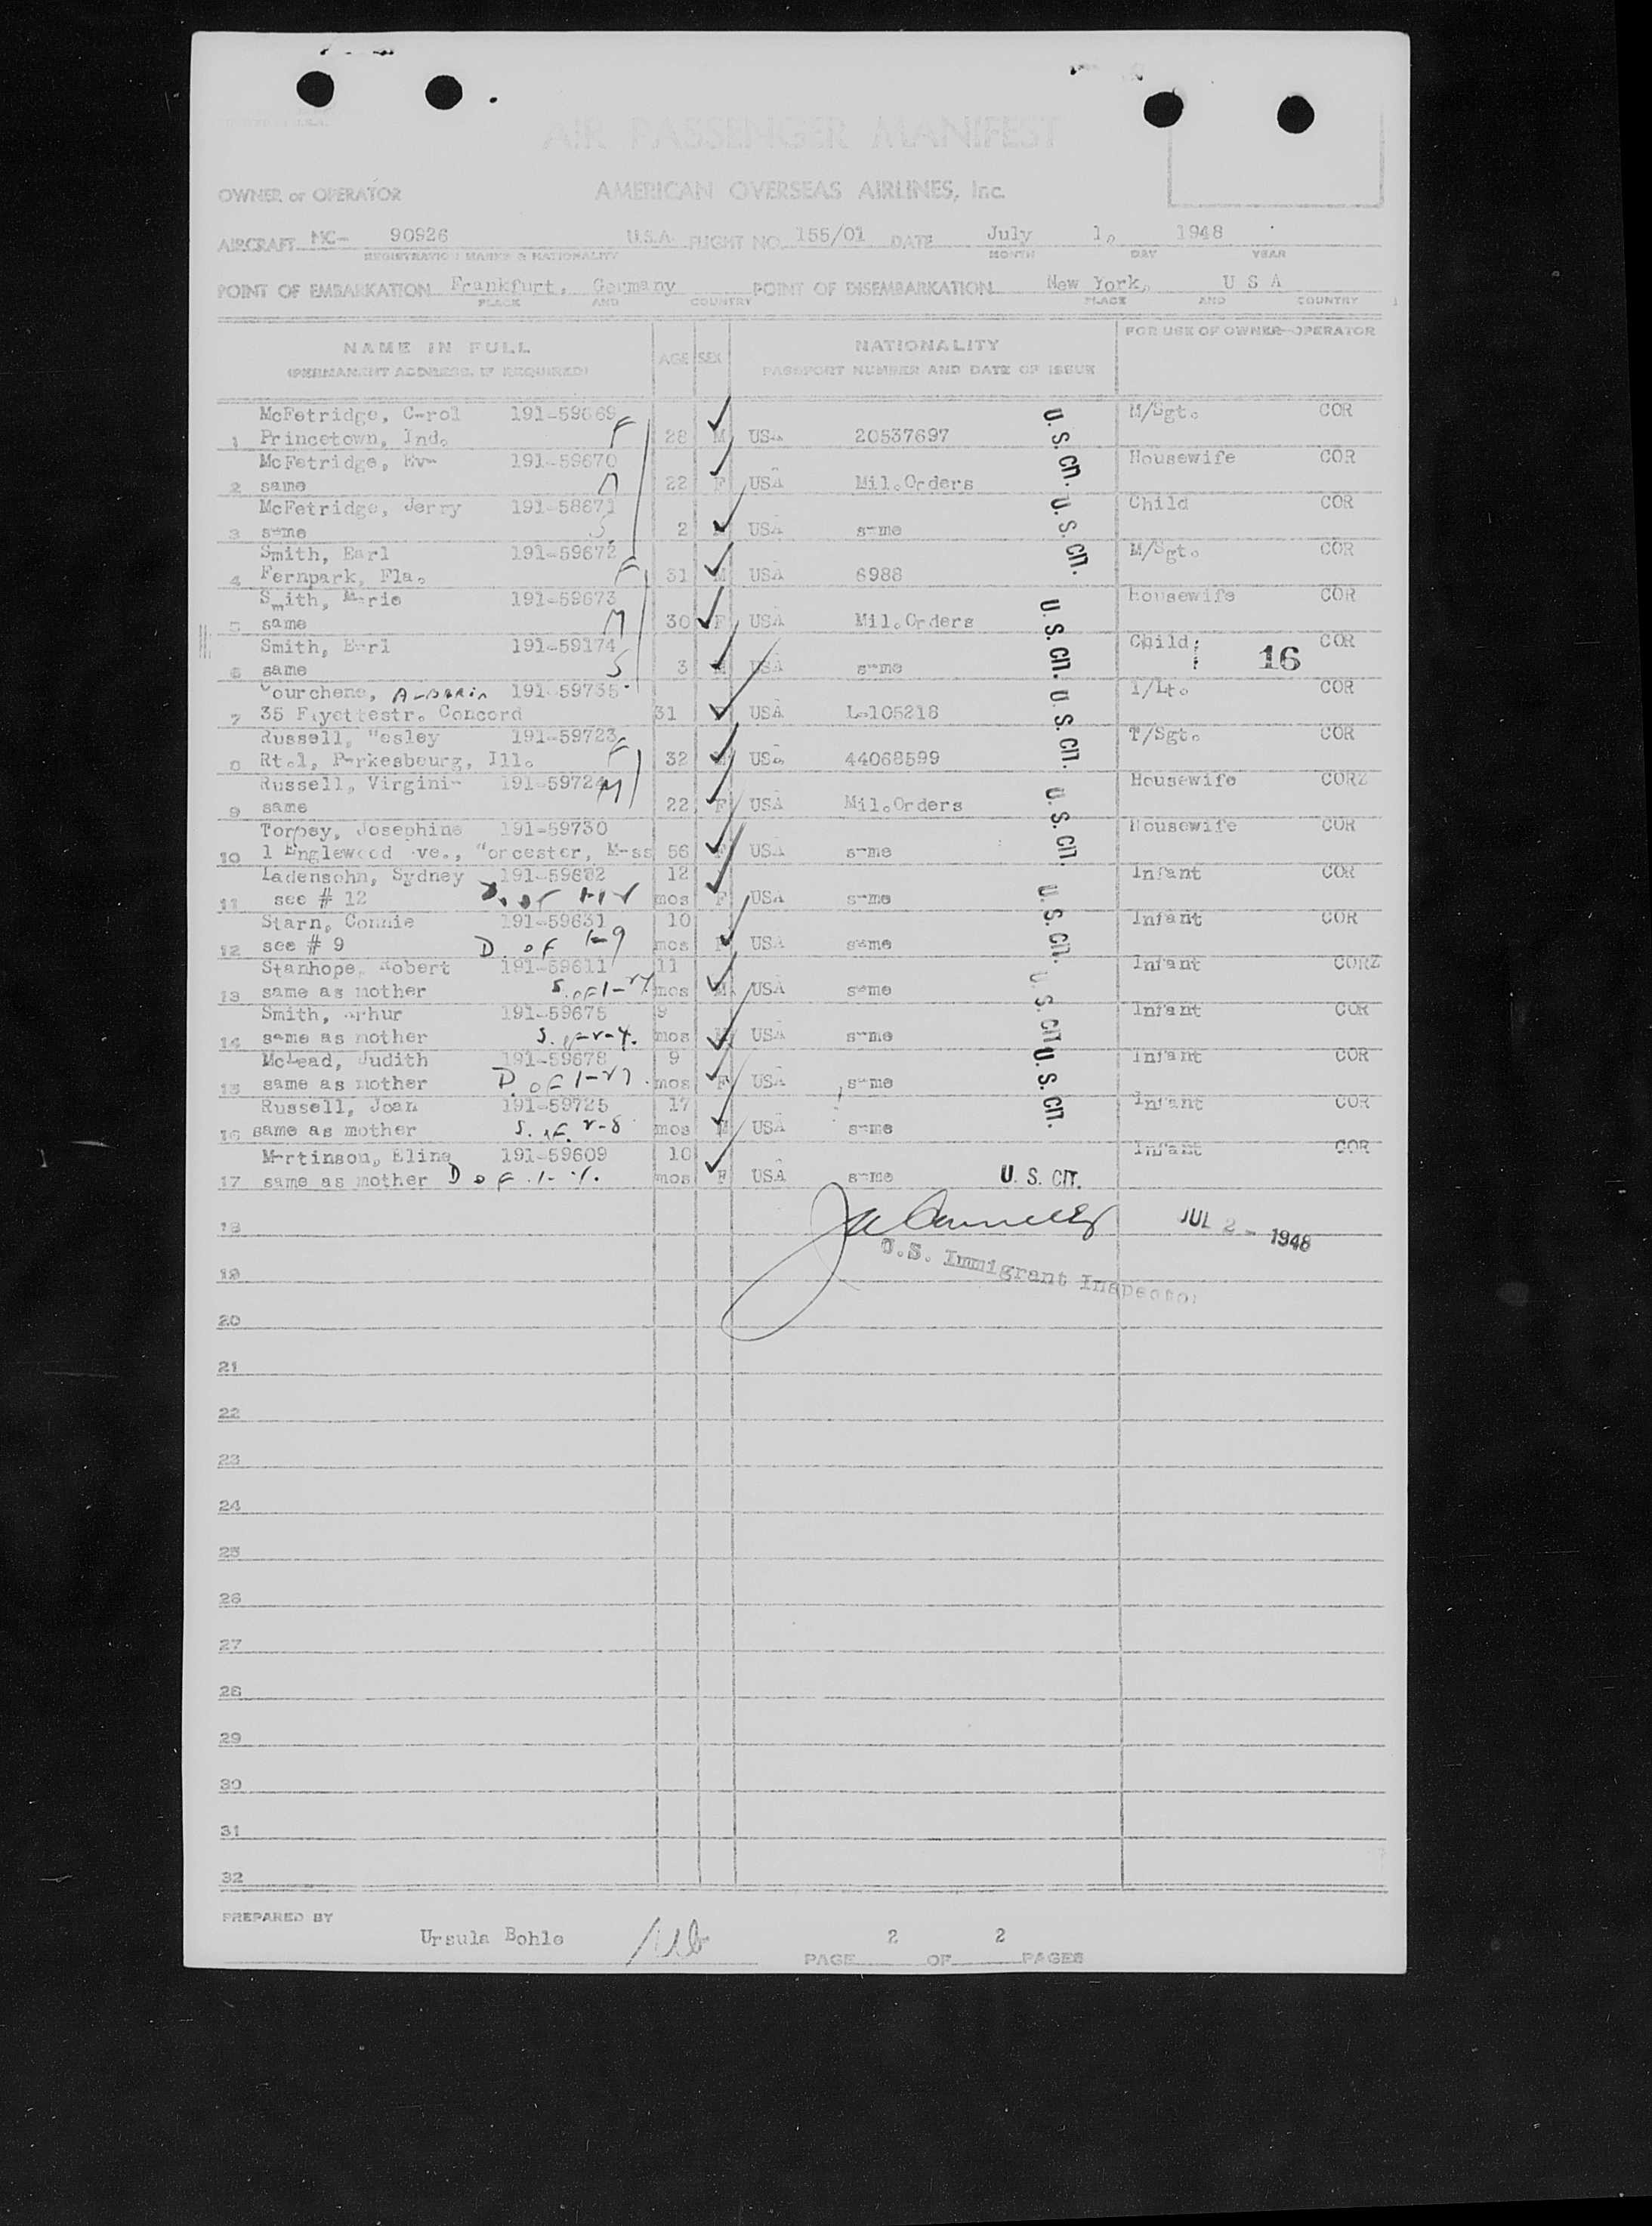 AIR PASSENGER MANIFEST
OWNER or OPERATOR AMERICAN OVERSEAS AIRLINES, Inc.
AIRCRAFT NC- 90926 U.S.A. FLIGHT NO. 155/01 DATE July 1, 1948
REGISTRATION MARKS & NATIONALITY MONTH DAY YEAR
POINT OF EMBARKATION Frankfurt, Germany POINT OF DISEMBARKATION New York, U S A
PLACE AND COUNTRY PLACE AND COUNTRY
NAME IN FULL AGE SEX NATIONALITY FOR USE OF OWNER-OPERATOR
(PERMANENT ADDRESS, IF REQUIRED) PASSPORT NUMBER AND DATE OF ISSUE
McFetridge, Carol 191-59669 M/Sgt. COR
1 Princetown, Ind. F 28 M USA 20537697 U. S. CIT.
McFetridge, Eva 191-59670 Housewife COR
2 same M 22 F USA Mil.Orders
McFetridge, Jerry 191-58671 Child COR
3 same S. 2 M USA same U. S. CIT.
Smith, Earl 191-59672 M/Sgt. COR
4 Fernpark, Fla. F 31 M USA 6988
Smith, Marie 191-59673 Housewife COR
5 same M 30 F USA Mil.Orders U. S. CIT.
Smith, Earl 191-59174 Child COR
6 same S 3 M USA same 16
191-59735 1/Lt. COR
7 35 Fayettestr. Concord 31 F USA L-105218 U. S. CIT.
Russell, Wesley 191-59723 T/Sgt. COR
8 Rt.1, Parkesbourg, Ill. F 32 M USA 44068599
Russell, Virginia 191-59724 Housewife CORZ
9 same M 22 F USA Mil.Orders U. S. CIT.
Torpey, Josephine 191-59730 Housewife COR
10 1 Englewood Ave., Worcester, Mass 56 F USA same
Ladensohn, Sydney 191-59682 12 Infant COR
11 see # 12 D. of mos F USA same U. S. CIT.
Starn, Connie 191-59631 10 Infant COR
12 see # 9 D of 1-9 mos F USA same
Stanhope, Robert 191-59611 11 Infant CORZ
13 same as mother S. of mos M USA same U. S. CIT.
Smith, Arhur 191-59675 9 Infant COR
14 same as mother mos M USA same
McLead, Judith 191-59678 9 Infant COR
15 same as mother D of mos F USA same U. S. CIT.
Russell, Joan 191-59725 17 Infant COR
16 same as mother mos USA same
Martinson, Eline 191-59609 10 Infant COR
17 same as mother D of mos F USA same U. S. CIT.
18 JUL 2 - 1948
U.S. Immigrant Inspector
19
20
21
22
23
24
25
26
27
28
29
30
31
32
PREPARED BY
Ursula Bohle
PAGE 2 OF 2 PAGES